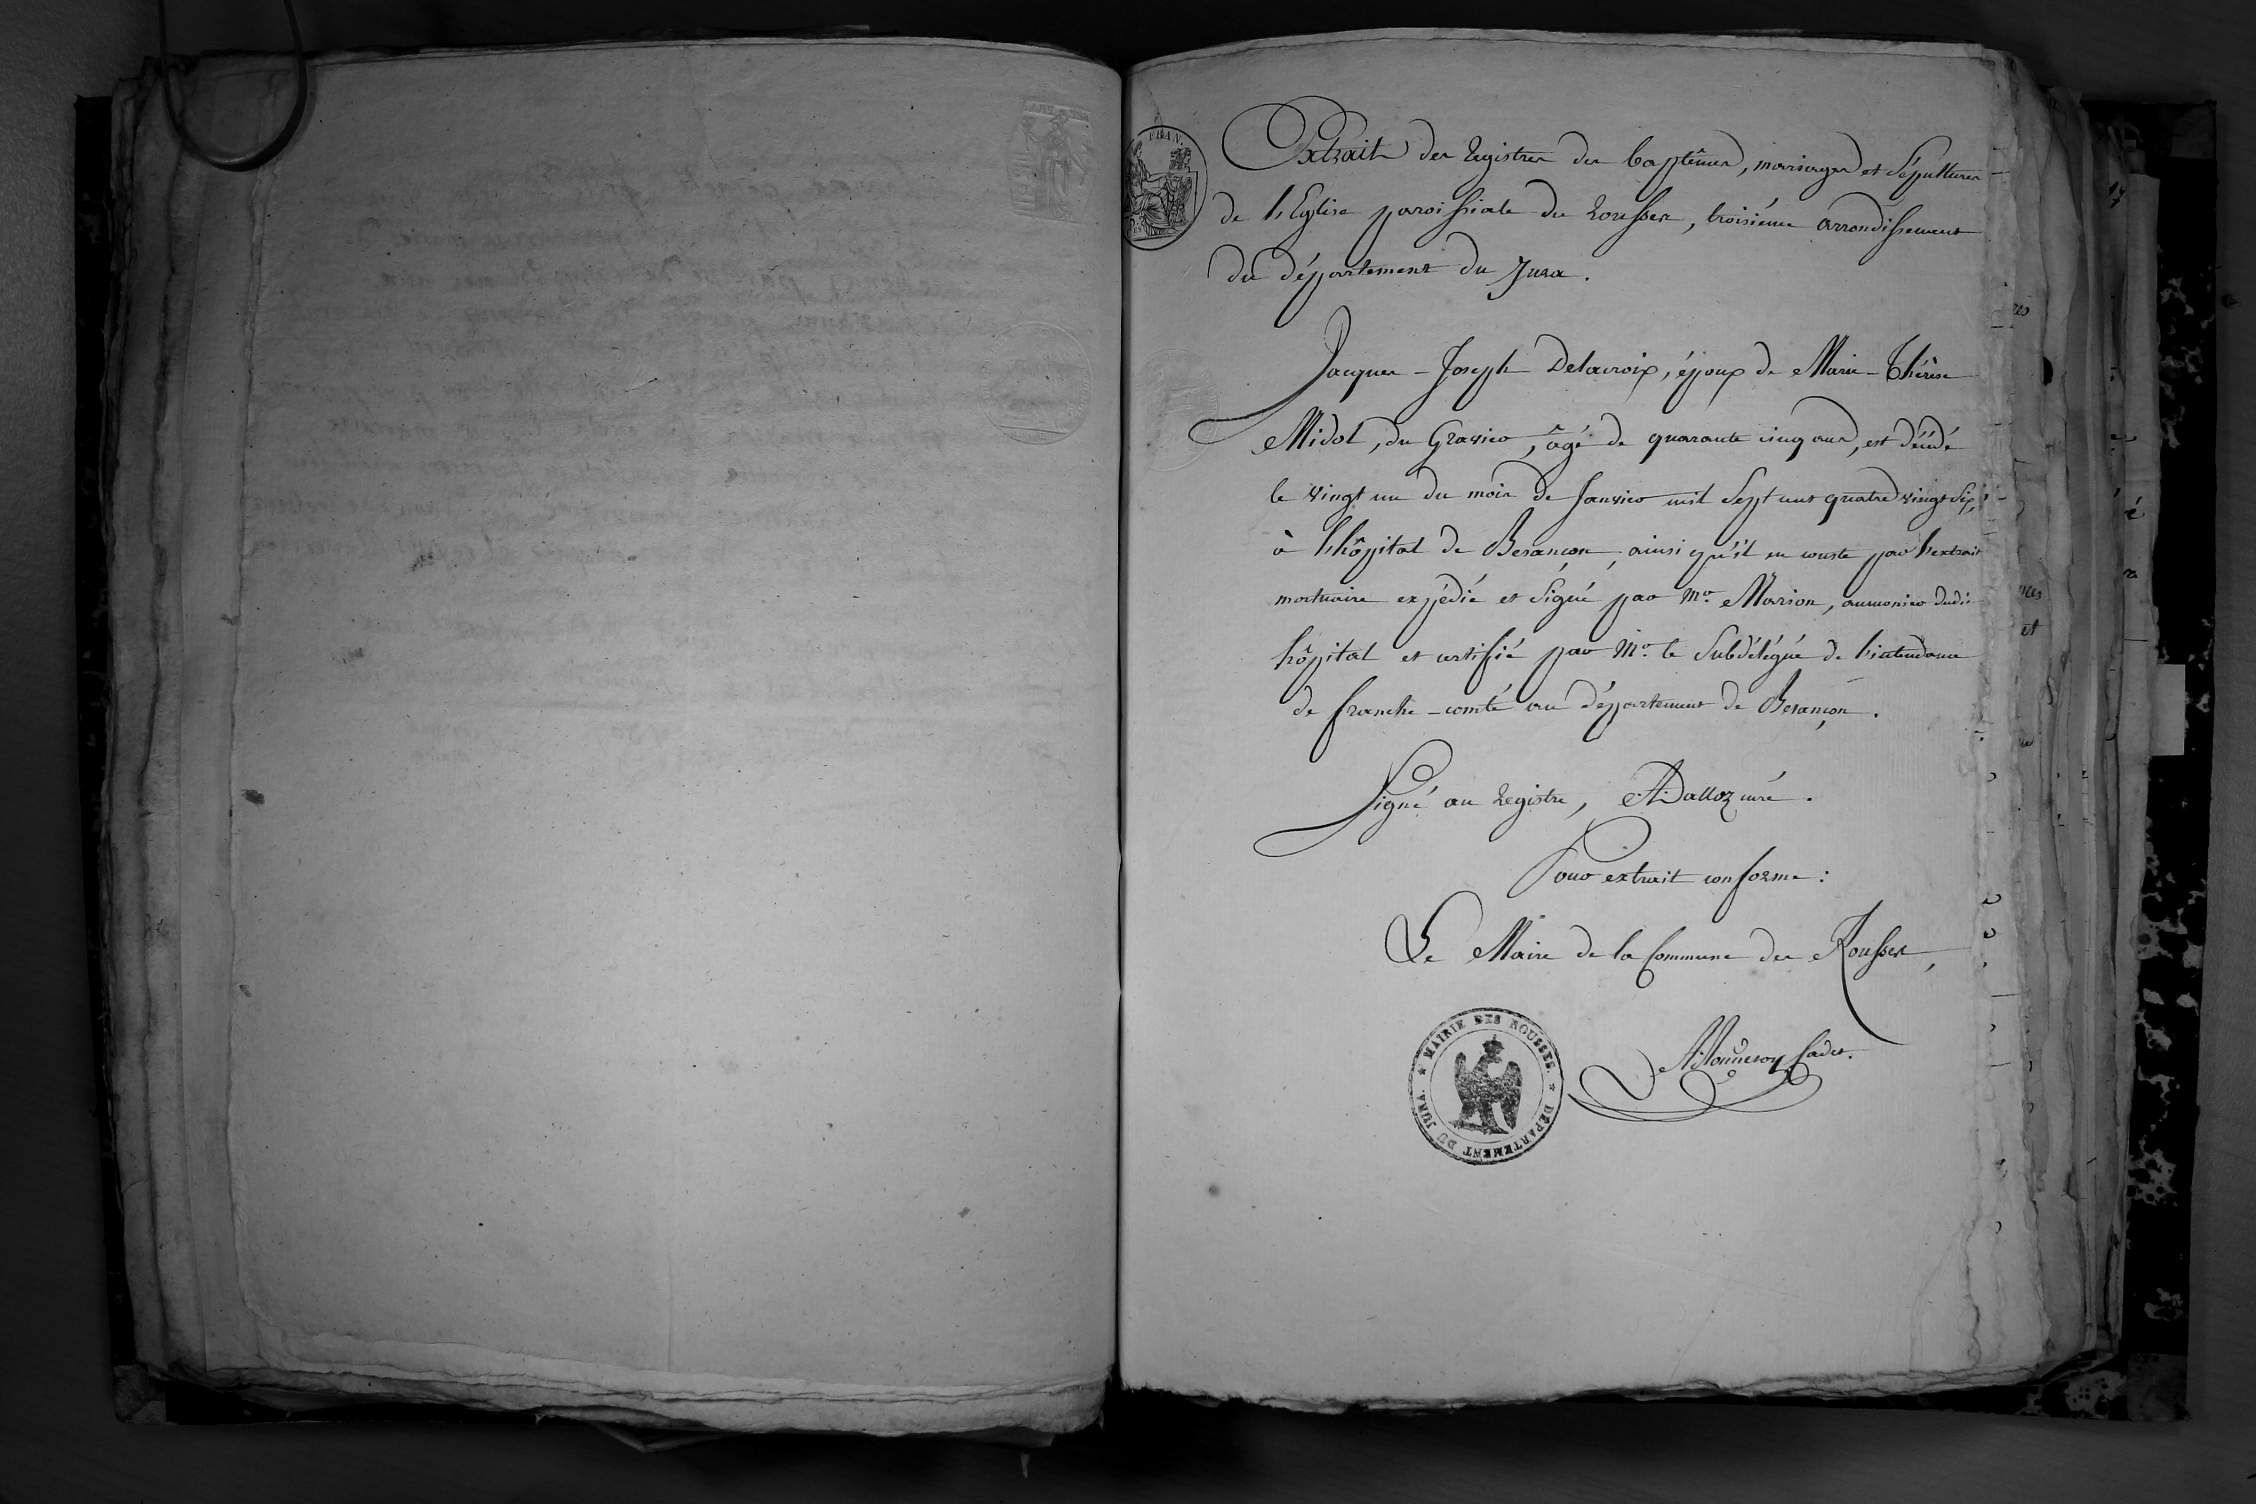 Extrait des Registres des baptêmes, mariages et Sépultures
de l'Eglise paroissiale des Rousses, troisième arrondissement
du département du Jura.
Jacques-Joseph Delacroix, époux de Marie-Thérèse
Midol, du Gravier, âgé de quarante cinq ans, est décédé
le vingt un du mois de Janvier mil Sept cent quatre vingt Six,
à l'hôpital de Besançon, ainsi qu'il en conste par l'extrait
mortuaire expédié et Signé par Mr. Marion, aumonier dudit
hôpital et certifié par Mr. le Subdélégué de l'intendance
de franche-comté au département de Besançon.
Signé au Registre, A. Dalloz curé.
Pour extrait conforme:
Le Maire de la Commune des Rousses,
MAIRIE DES ROUSSES. * DÉPARTEMENT DU JURA. *
Cadet.
FRAN.